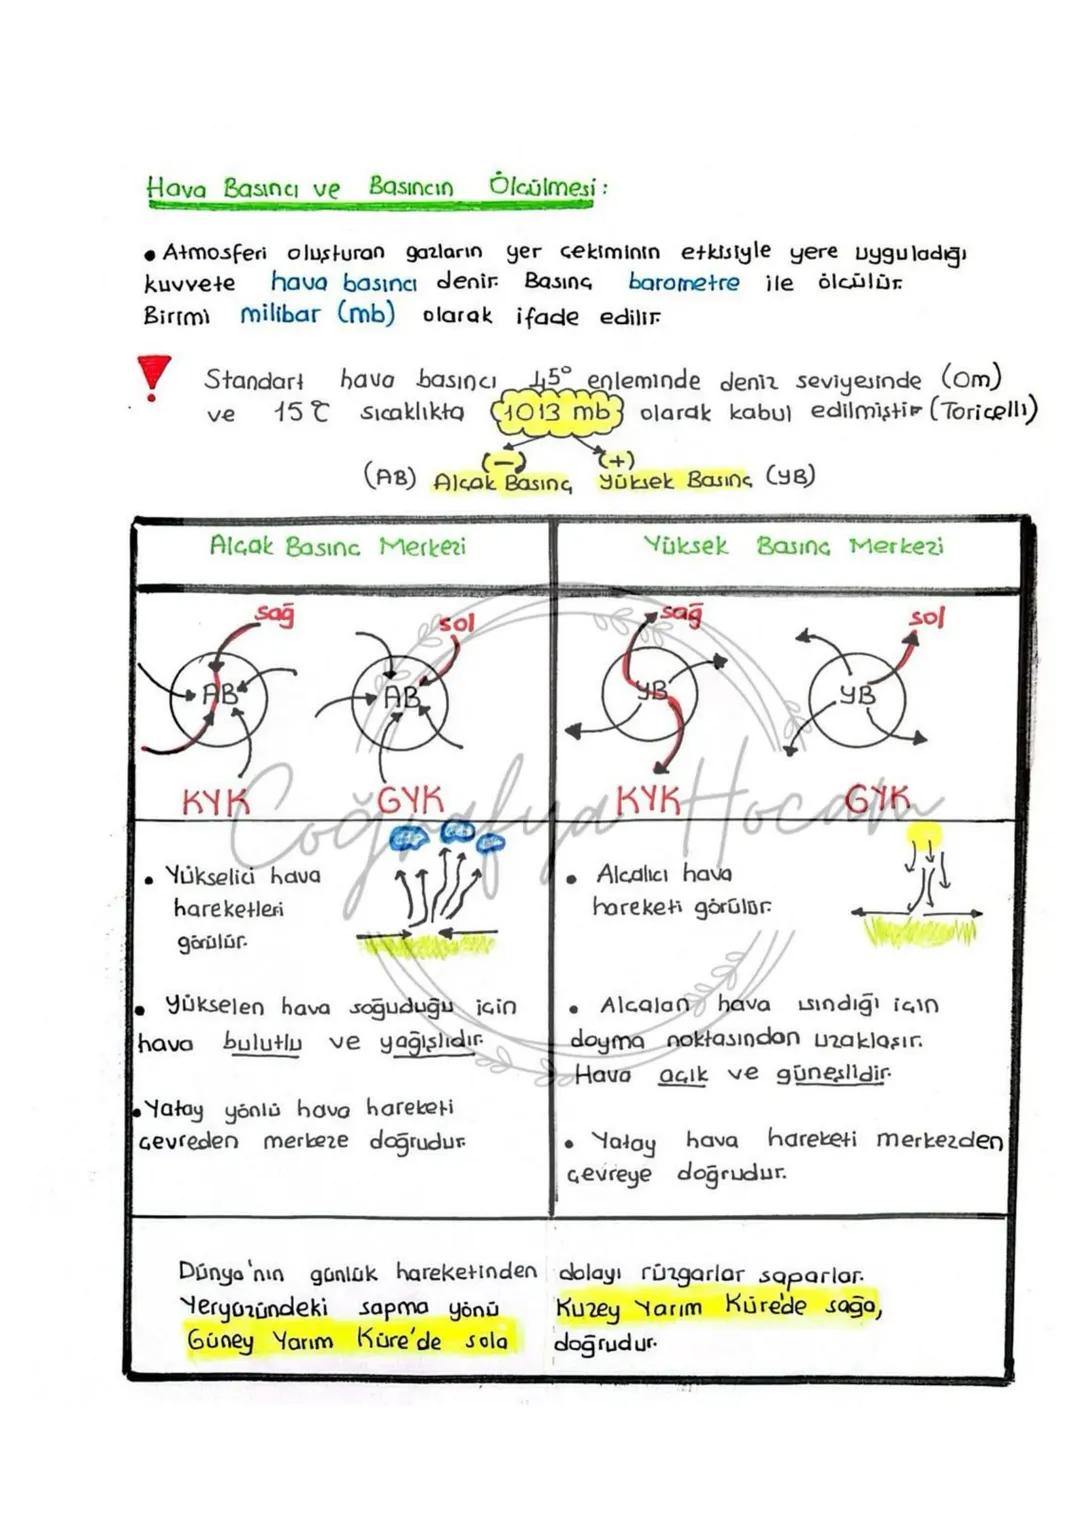 Hava Basıncı ve Basıncın Ölçülmesi:
• Atmosferi oluşturan gazların yer çekiminin etkisiyle yere uyguladığı
kuvvete hava basıncı denir. Basınç barometre ile ölçülür.
Birimi milibar (mb) olarak ifade edilir.
! Standart hava basıncı 45° enleminde deniz seviyesinde (0m)
ve 15℃ sıcaklıkta 1013 mb olarak kabul edilmiştir (Toricelli)
(-) (+)
(AB) Alçak Basınç Yüksek Basınç (YB)
Alçak Basınç Merkezi
Yüksek Basınç Merkezi
sağ
sol
sağ
sol
AB
AB
YB
YB
KYK
GYK
KYK
GYK
Coğrafya Hocam
• Yükselici hava
hareketleri
görülür.
• Alçalıcı hava
hareketi görülür.
• Yükselen hava soğuduğu için
hava bulutlu ve yağışlıdır.
• Alçalan hava ısındığı için
doyma noktasından uzaklaşır.
Hava açık ve güneşlidir.
• Yatay yönlü hava hareketi
çevreden merkeze doğrudur.
• Yatay hava hareketi merkezden
çevreye doğrudur.
Dünya'nın günlük hareketinden dolayı rüzgarlar saparlar.
Yeryüzündeki sapma yönü Kuzey Yarım Küre'de sağa,
Güney Yarım Küre'de sola doğrudur.